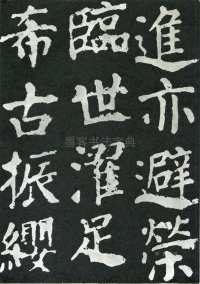 進亦避榮
臨世濯足
希古振纓
墨客书法字典